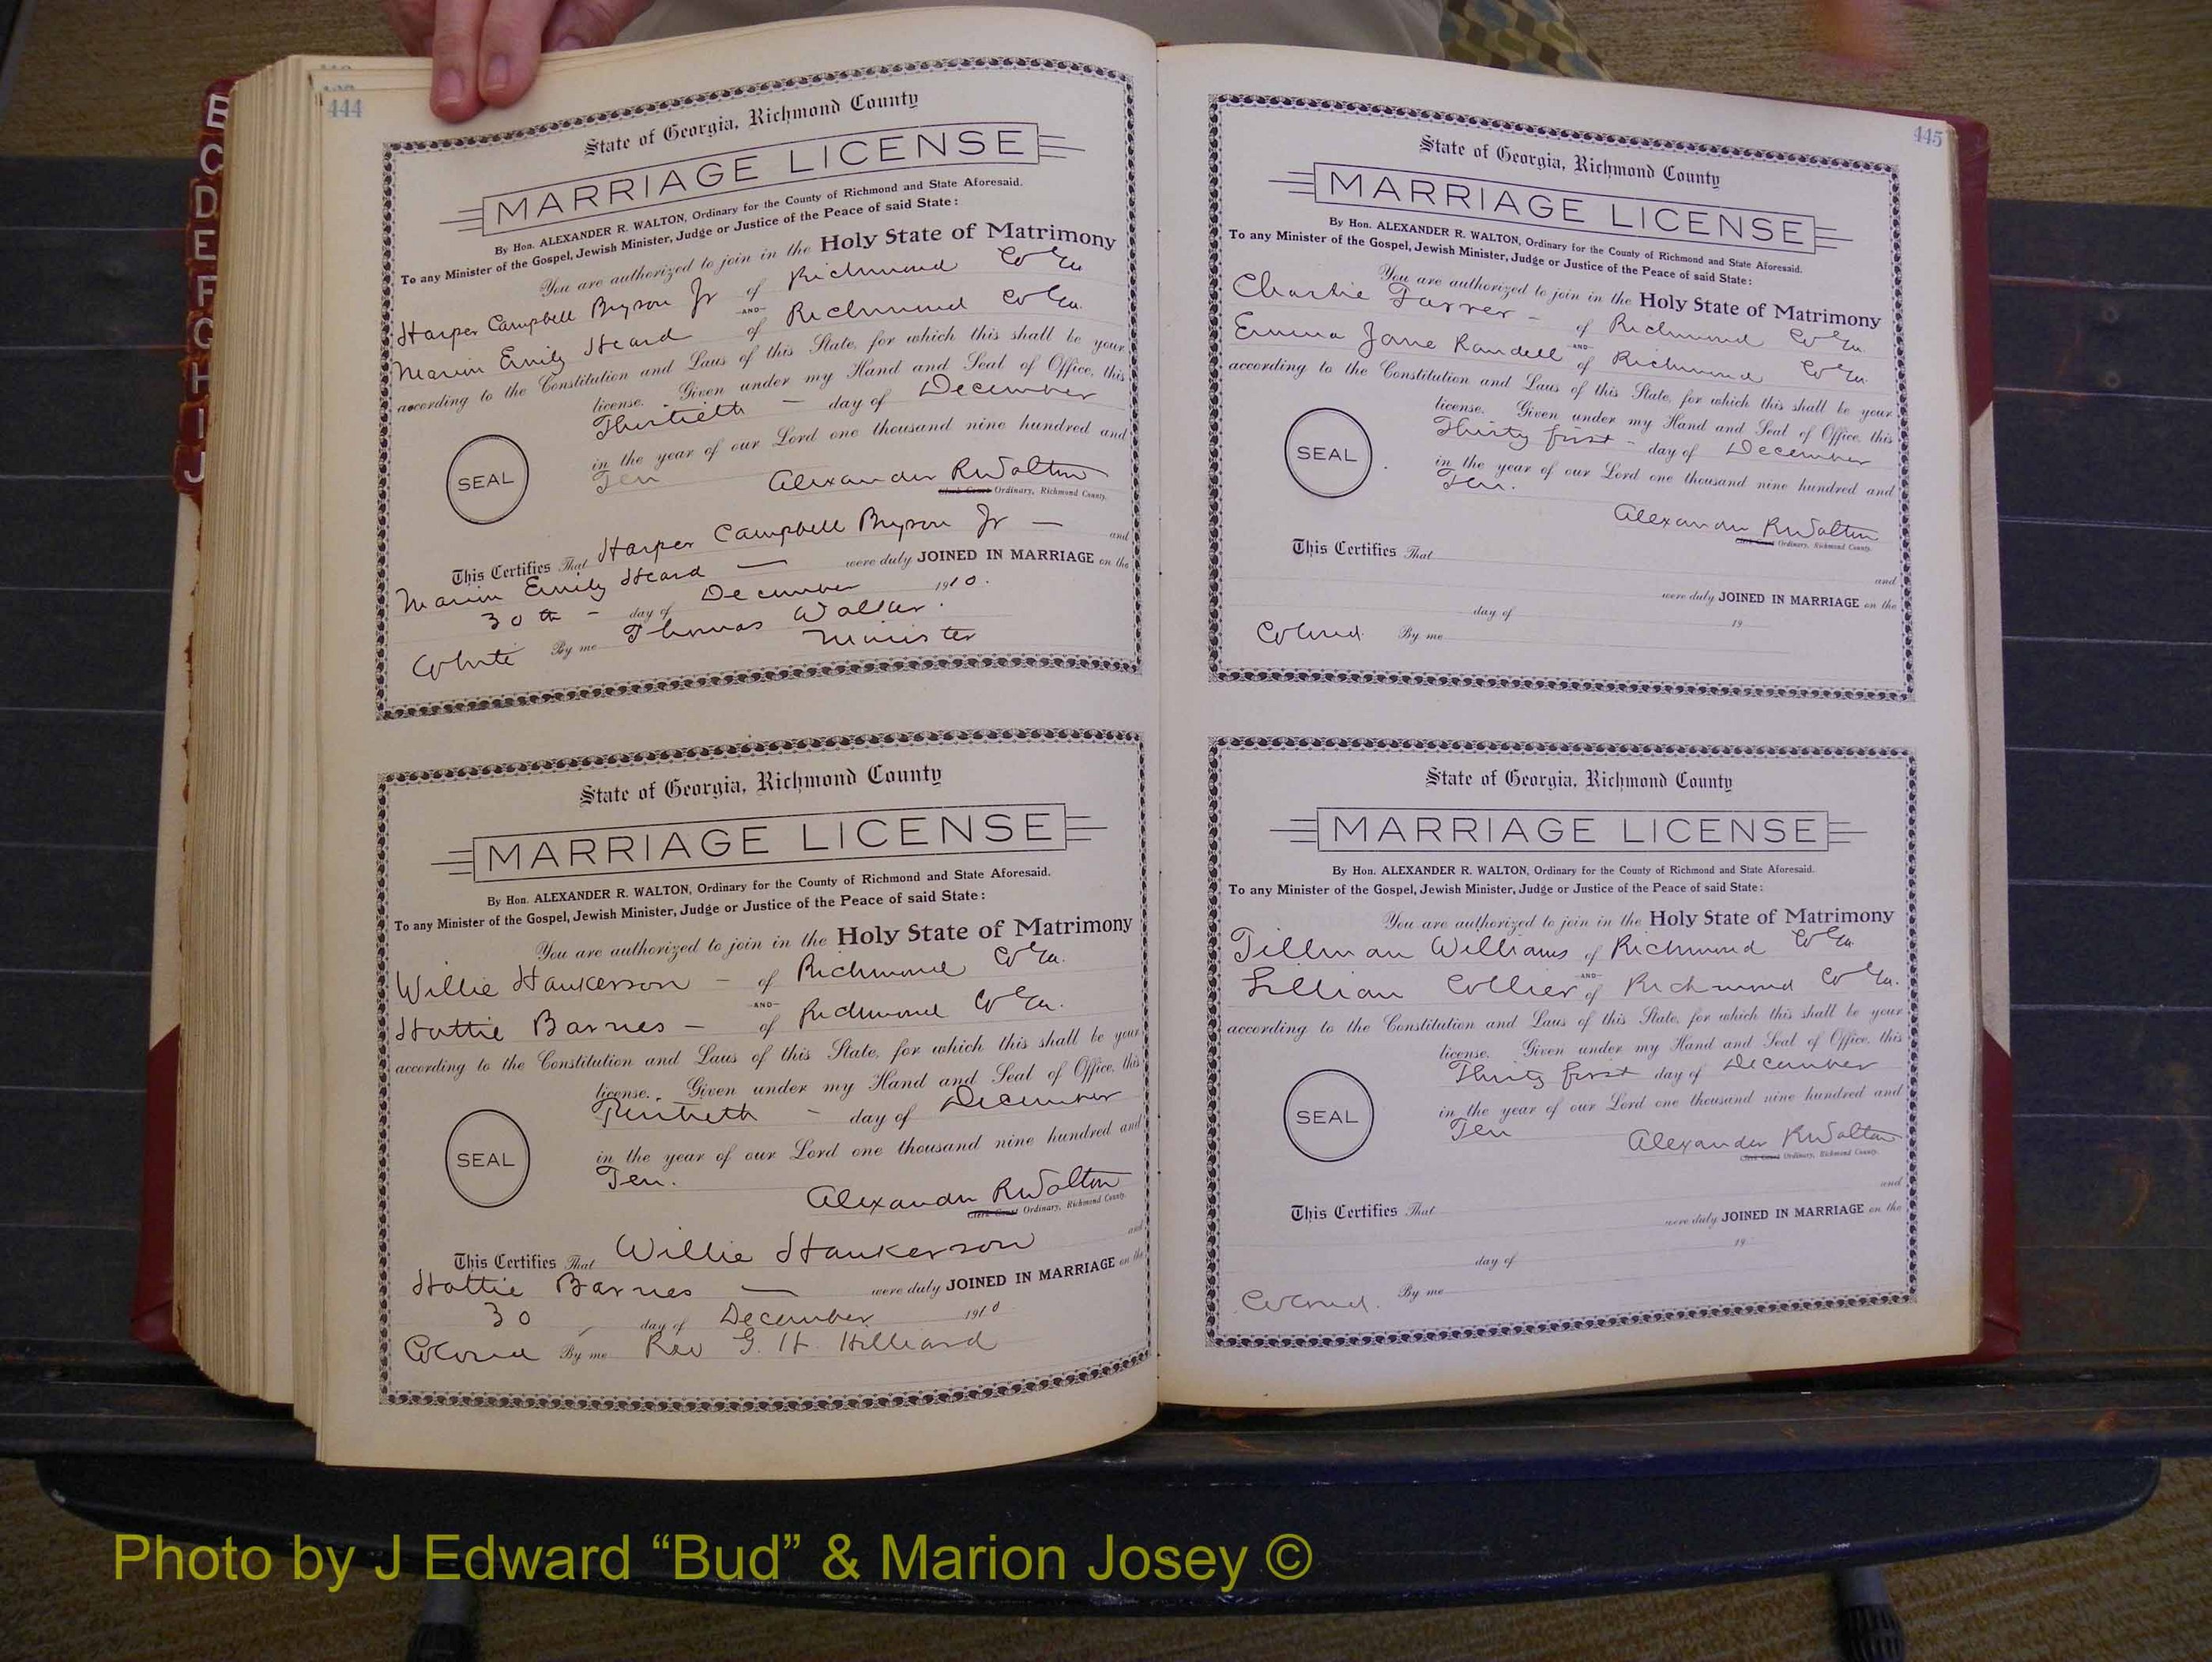 B
C
D
E
F
G
H
I
J
444
State of Georgia, Richmond County
MARRIAGE LICENSE
By Hon. ALEXANDER R. WALTON, Ordinary for the County of Richmond and State Aforesaid.
To any Minister of the Gospel, Jewish Minister, Judge or Justice of the Peace of said State:
You are authorized to join in the Holy State of Matrimony
Harper Campbell Bryson Jr of Richmond Co Ga
-AND-
Marion Emily Heard of Richmond Co Ga.
according to the Constitution and Laws of this State, for which this shall be your
license. Given under my Hand and Seal of Office, this
Thirtieth - day of December
SEAL
in the year of our Lord one thousand nine hundred and
Ten
Alexander R Walton
Clerk Court Ordinary, Richmond County.
This Certifies That Harper Campbell Bryson Jr — and
Marion Emily Heard — were duly JOINED IN MARRIAGE on the
30th - day of December 1910.
White By me Thomas Walker.
Minister
State of Georgia, Richmond County
MARRIAGE LICENSE
By Hon. ALEXANDER R. WALTON, Ordinary for the County of Richmond and State Aforesaid.
To any Minister of the Gospel, Jewish Minister, Judge or Justice of the Peace of said State:
You are authorized to join in the Holy State of Matrimony
Willie Hankerson - of Richmond Co Ga.
-AND-
Hattie Barnes - of Richmond Co Ga.
according to the Constitution and Laws of this State, for which this shall be your
license. Given under my Hand and Seal of Office, this
- day of December
SEAL
in the year of our Lord one thousand nine hundred and
Ten.
Alexander R Walton
Clerk Court Ordinary, Richmond County.
This Certifies That Willie Hankerson and
Hattie Barnes — were duly JOINED IN MARRIAGE on the
30 day of December 1910
Colored By me Rev G. H. Hilliard
445
State of Georgia, Richmond County
MARRIAGE LICENSE
By Hon. ALEXANDER R. WALTON, Ordinary for the County of Richmond and State Aforesaid.
To any Minister of the Gospel, Jewish Minister, Judge or Justice of the Peace of said State:
You are authorized to join in the Holy State of Matrimony
Charlie Farrer - of Richmond Co Ga
-AND-
Emma Jane Randell of Richmond Co Ga.
according to the Constitution and Laws of this State, for which this shall be your
license. Given under my Hand and Seal of Office, this
Thirty first - day of December
SEAL
in the year of our Lord one thousand nine hundred and
Ten.
Alexander R Walton
Clerk Court Ordinary, Richmond County.
This Certifies That
and
were duly JOINED IN MARRIAGE on the
day of 19
Colored. By me
State of Georgia, Richmond County
MARRIAGE LICENSE
By Hon. ALEXANDER R. WALTON, Ordinary for the County of Richmond and State Aforesaid.
To any Minister of the Gospel, Jewish Minister, Judge or Justice of the Peace of said State:
You are authorized to join in the Holy State of Matrimony
Tillman Williams of Richmond Co Ga.
-AND-
Lillian Collier of Richmond Co Ga.
according to the Constitution and Laws of this State, for which this shall be your
license. Given under my Hand and Seal of Office, this
Thirty first day of December
SEAL
in the year of our Lord one thousand nine hundred and
Ten
Alexander R Walton
Clerk Court Ordinary, Richmond County.
and
This Certifies That
were duly JOINED IN MARRIAGE on the
day of 19
Colored. By me
Photo by J Edward “Bud” & Marion Josey ©